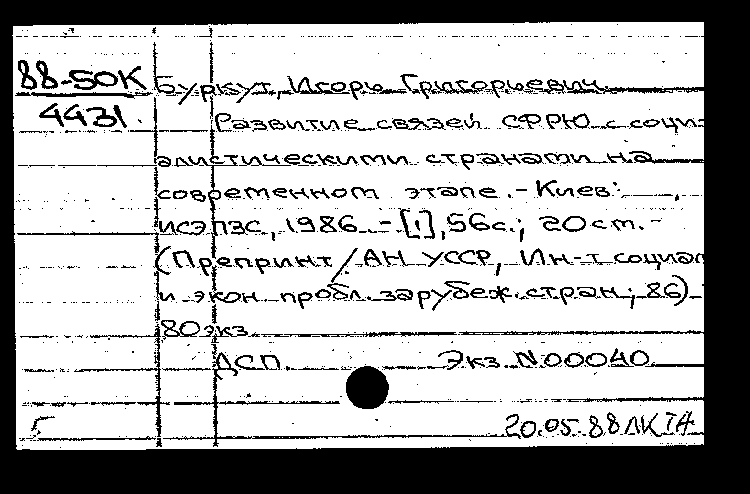 88-50К Буркут, Игорь Григорьевич
4431. Развитие связей СФРЮ с соци-
алистическими странами на
современном этапе. - Киев:
ИСЭПЗС, 1986. - [1], 56с.; 20 см. -
(Препринт / АН УССР, Ин-т социал
и экон пробл. зарубеж. стран; 86)
80 экз
ДСП. Экз. N00040
5 20.05.88 ЛК ТА